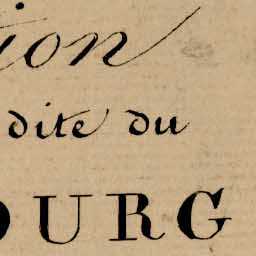 ion
dite du
OURG